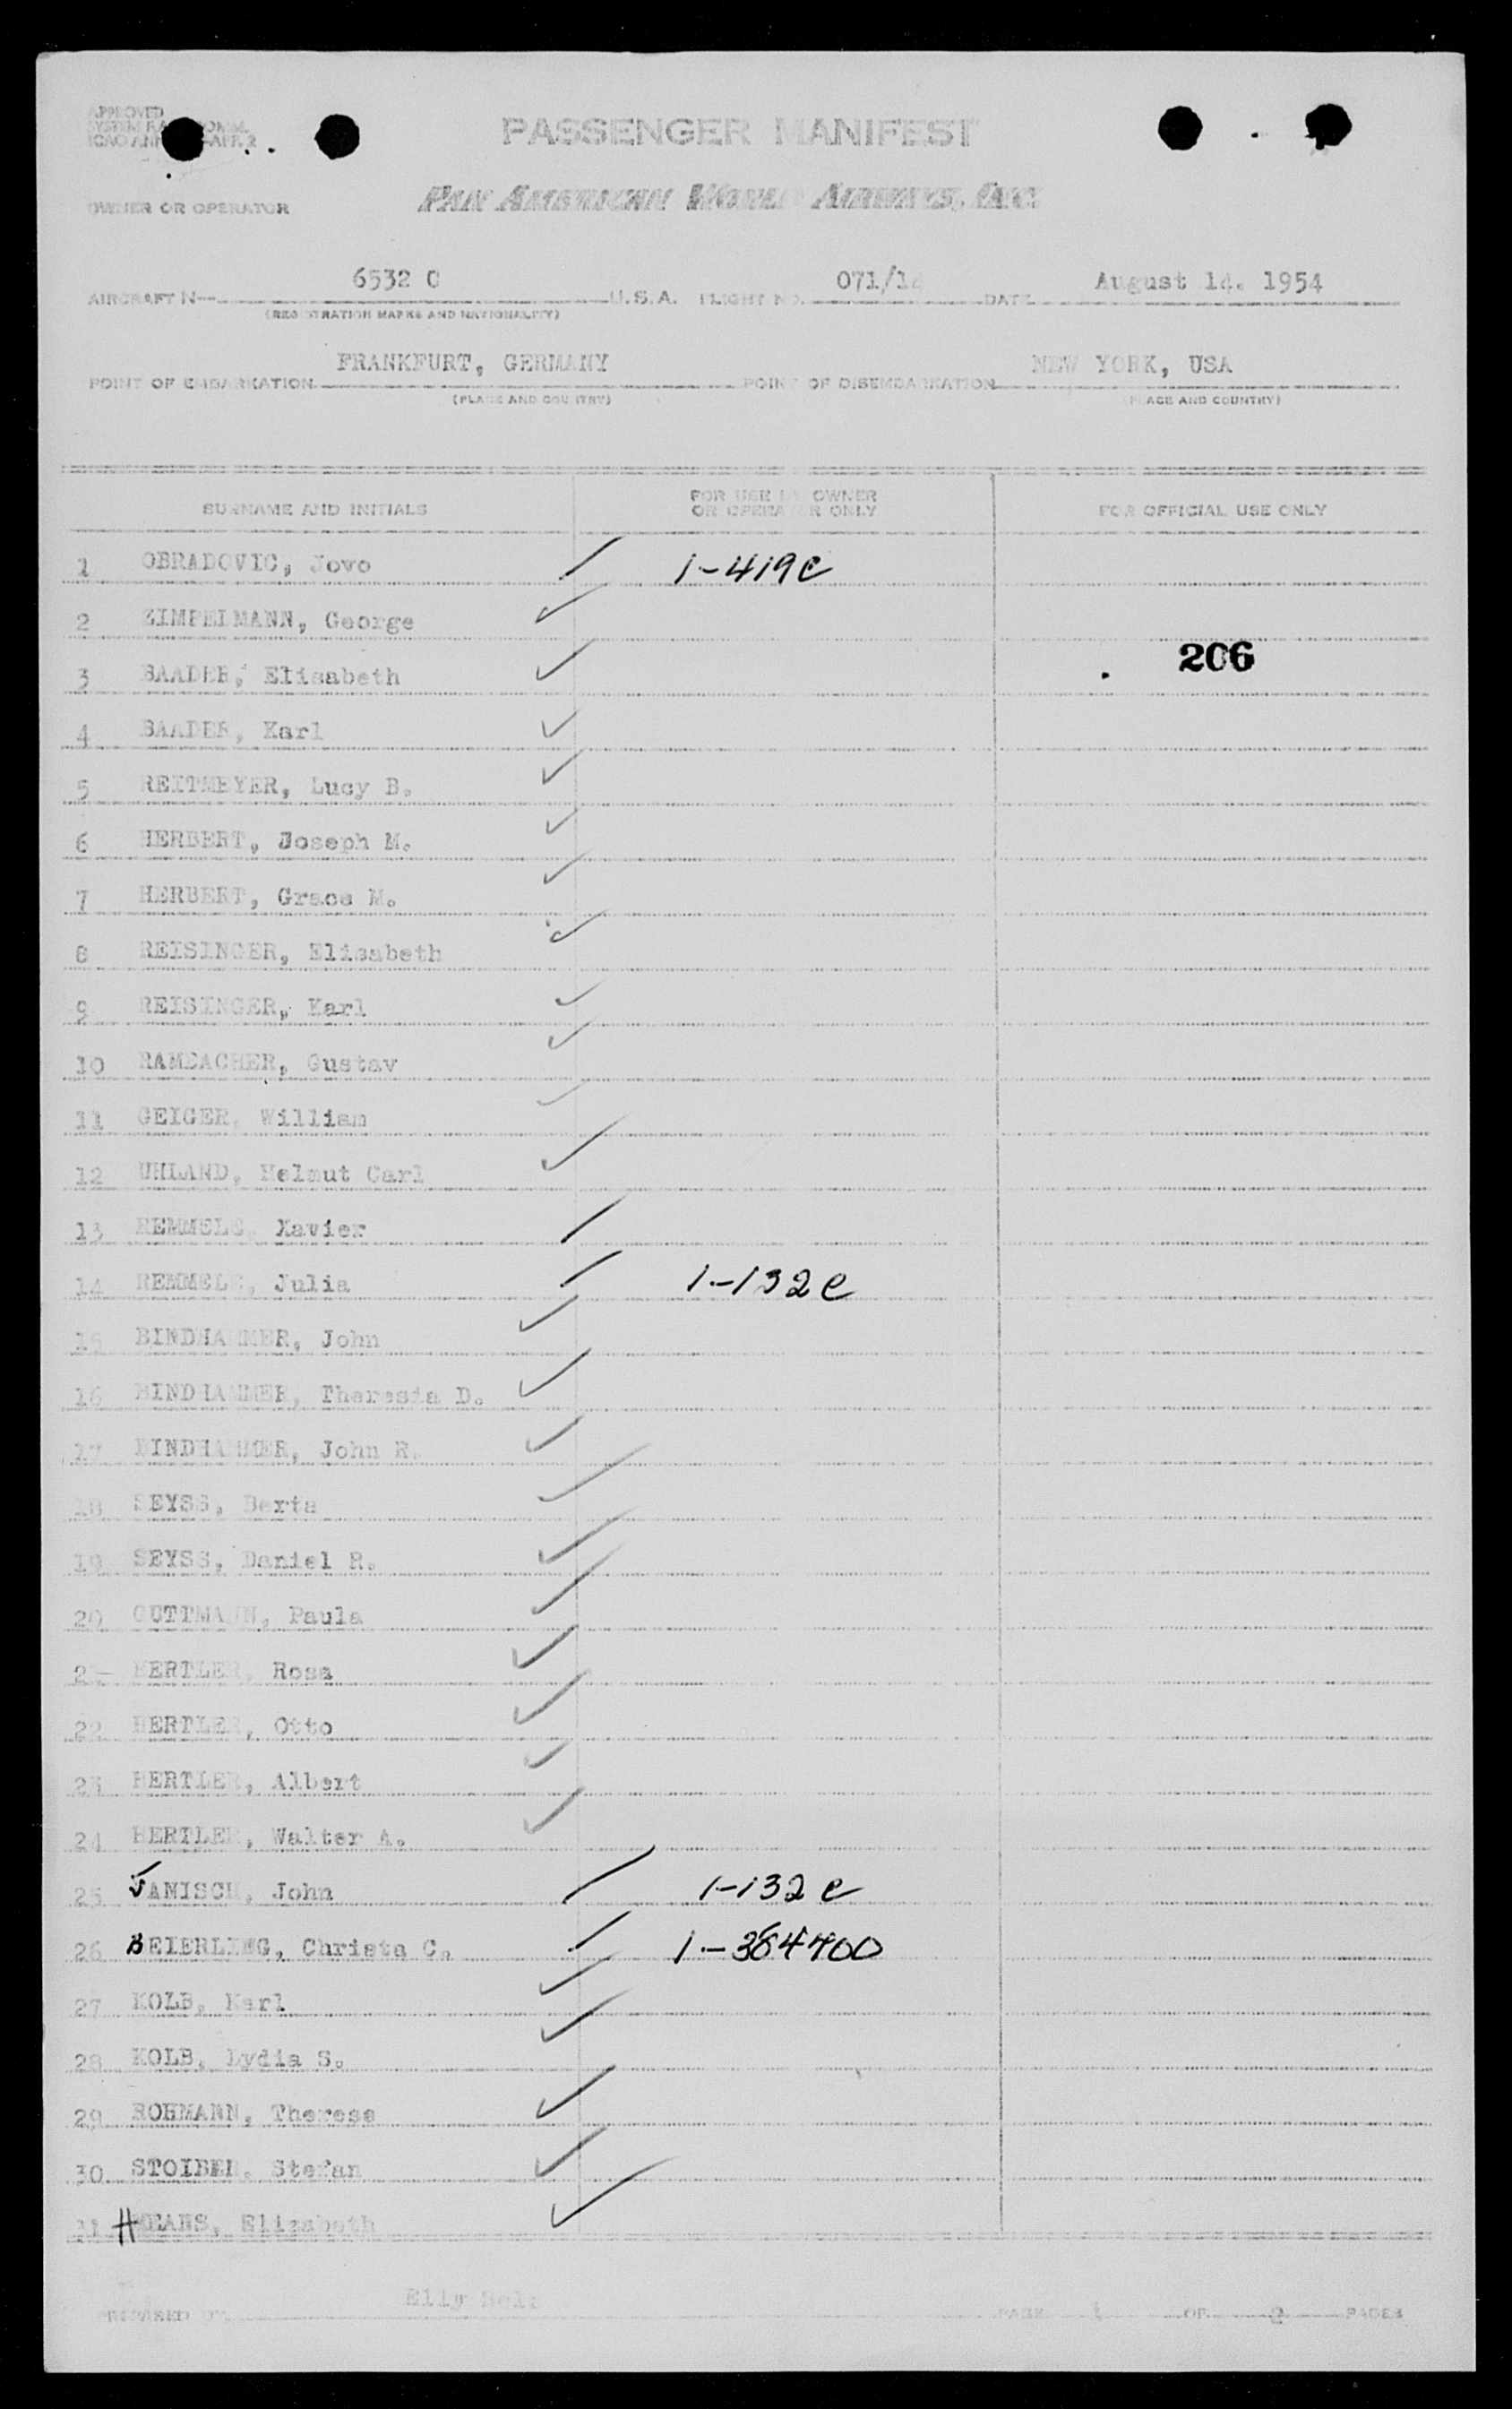 APPROVED
OWNER OR OPERATOR
PASSENGER MANIFEST
PAN AMERICAN WORLD AIRWAYS, INC.
AIRCRAFT N— 6532 C U.S.A. FLIGHT NO. 071/14 DATE August 14. 1954
(REGISTRATION MARKS AND NATIONALITY)
POINT OF EMBARKATION FRANKFURT, GERMANY POINT OF DISEMBARKATION NEW YORK, USA
(PLACE AND COUNTRY) (PLACE AND COUNTRY)
SURNAME AND INITIALS FOR USE BY OWNER OR OPERATOR ONLY FOR OFFICIAL USE ONLY
1 OBRADOVIC, Jovo 1-419c
2 ZIMPELMANN, George
206
3 BAADER, Elisabeth
4 BAADER, Karl
5 REITMEYER, Lucy B.
6 HERBERT, Joseph M.
7 HERBERT, Grace M.
8 REISINGER, Elisabeth
9 REISINGER, Karl
10 RAMBACHER, Gustav
11 GEIGER, William
12 UHLAND, Helmut Carl
13 REMMELE, Xavier
14 REMMELE, Julia 1-132c
15 BINDHAMMER, John
16 BINDHAMMER, Theresia D.
17 BINDHAMMER, John R.
18 SEYSS, Berta
19 SEYSS, Daniel R.
20 GUTTMANN, Paula
2- HERTLER, Rosa
22 HERTLER, Otto
23 HERTLER, Albert
24 HERTLER, Walter A.
25 JANISCH, John 1-132c
26 BEIERLING, Christa C. 1-364400
27 KOLB, Karl
28 KOLB, Lydia S.
29 ROHMANN, Therese
30 STOIBER, Stefan
31 HMEANS, Elizabeth
PREPARED BY Elly PAGE 1 OF 2 PAGES